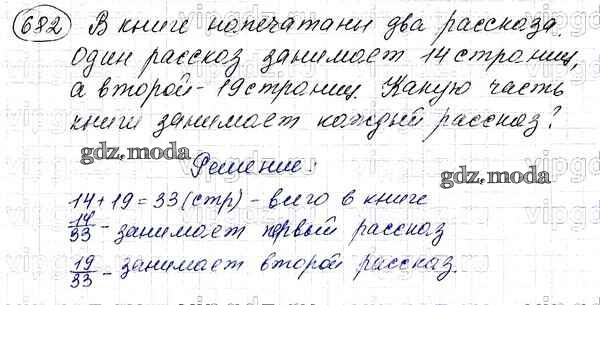 682 В книге напечатаны два рассказа.
Один рассказ занимает 14 страниц,
а второй - 19 страниц. Какую часть
книги занимает каждый рассказ?
gdz.moda
Решение:
gdz.moda
14+19=33 (стр) - всего в книге
14/33 - занимает первый рассказ
19/33 - занимает второй рассказ.